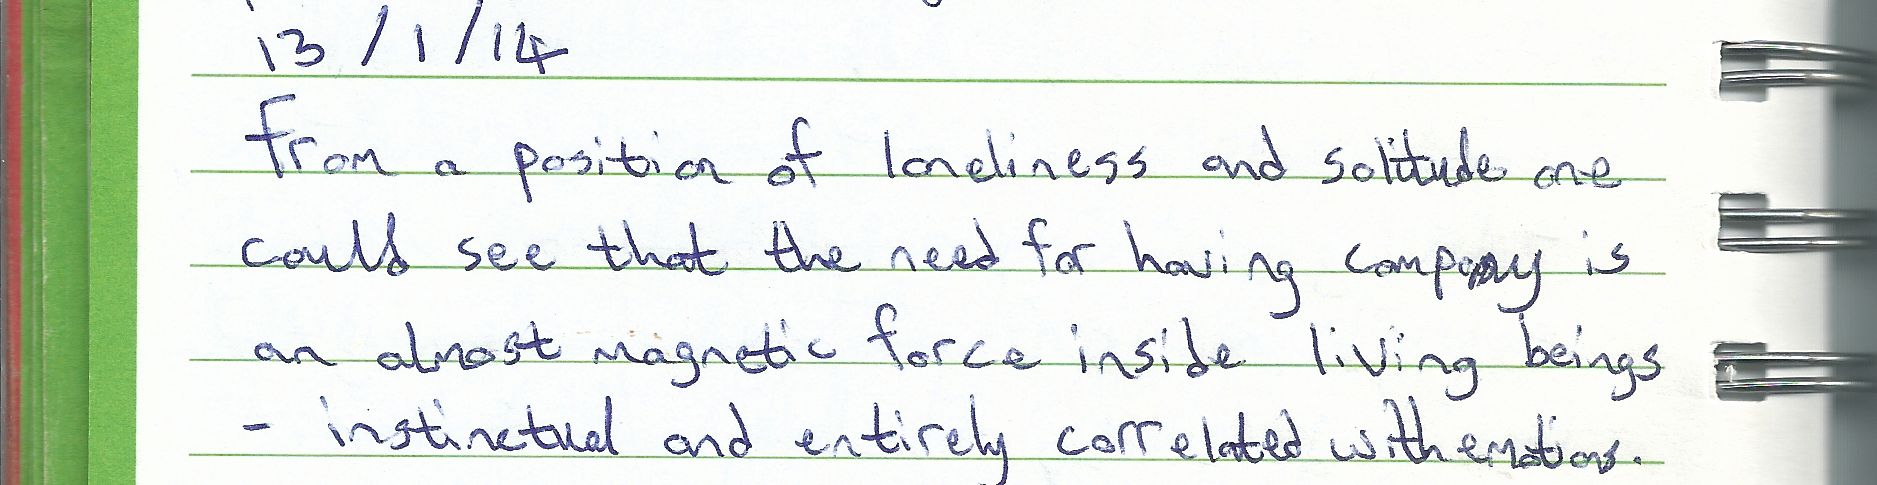 13/1/14
From a position of loneliness and solitude one
could see that the need for having company is
an almost magnetic force inside living beings
- instinctual and entirely correlated with emotions.